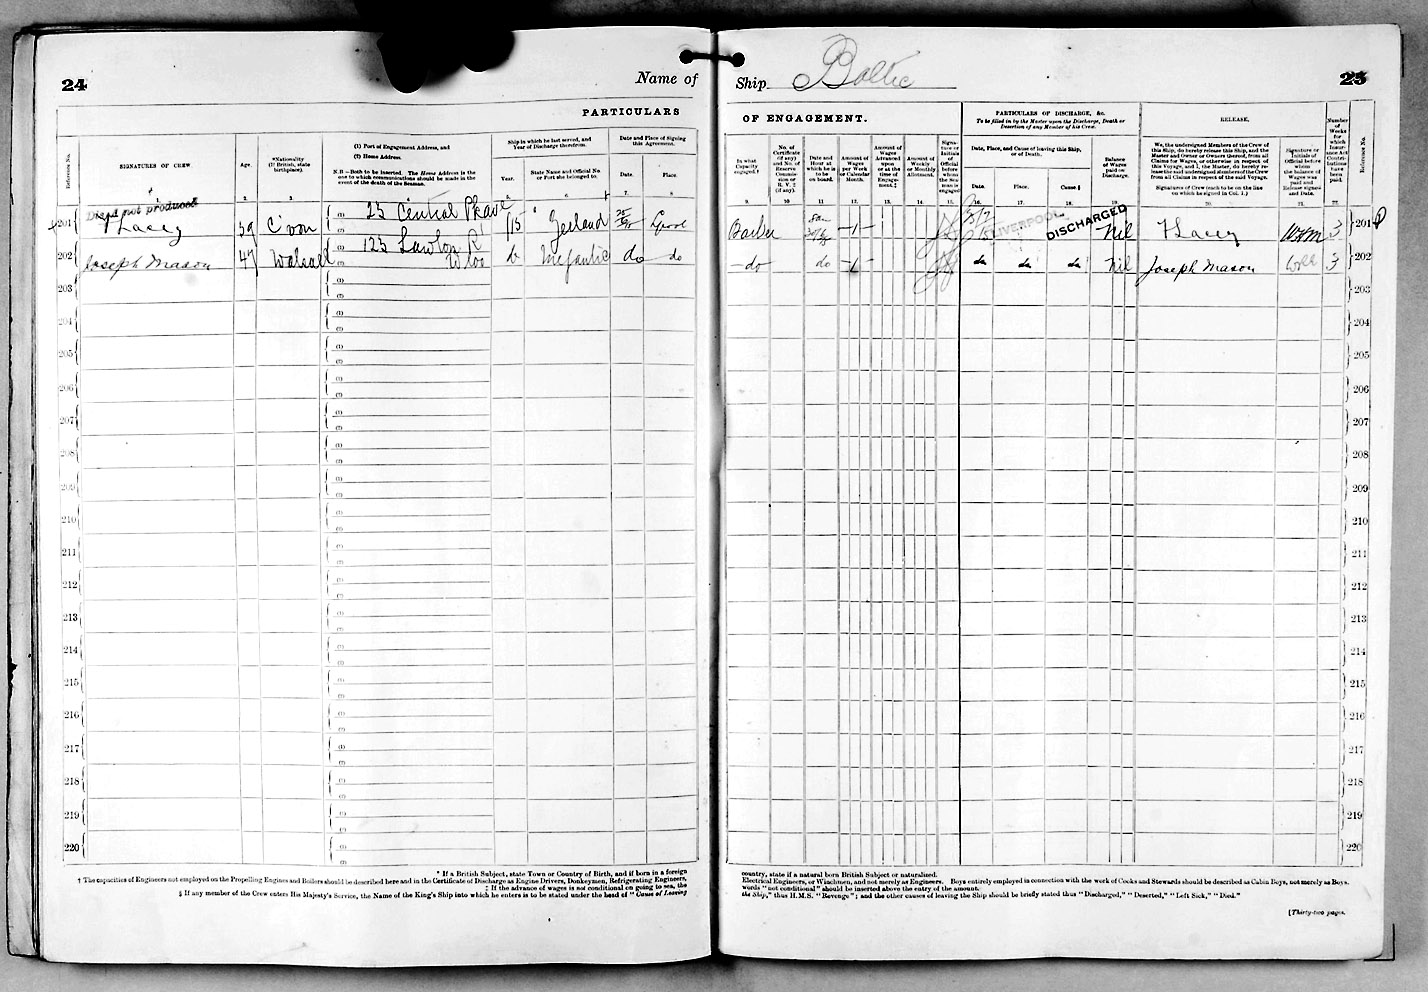 24
Name of
Ship Baltic
25
PARTICULARS
OF ENGAGEMENT.
PARTICULARS OF DISCHARGE, &c.
To be filled in by the Master upon the Discharge, Death or
Desertion of any Member of his Crew.
RELEASE.
Reference No.
SIGNATURES OF CREW.
Age.
*Nationality
(If British, state
birthplace).
(1) Port of Engagement Address, and
(2) Home Address.
N.B.—Both to be inserted. The Home Address is the
one to which communications should be made in the
event of the death of the Seaman.
Ship in which he last served, and
Year of Discharge therefrom.
Year.
State Name and Official No.
or Port she belonged to.
Date and Place of Signing
this Agreement.
Date.
Place.
In what
Capacity
engaged.†
No. of
Certificate
(if any)
and No. of
Reserve
Commis-
sion or
R. V. 2
(if any).
Date and
Hour at
which he is
to be
on board.
Amount of
Wages
per Week
or Calendar
Month.
Amount of
Wages
Advanced
upon
or at the
time of
Engage-
ment.‡
Amount of
Weekly
or Monthly
Allotment.
Signa-
ture or
Initials
of
Official
before
whom
the Sea-
man is
engaged
Date, Place, and Cause of leaving this Ship,
or of Death.
Date.
Place.
Cause §
Balance
of Wages
paid on
Discharge.
We, the undersigned Members of the Crew of
this Ship, do hereby release this Ship, and the
Master and Owner or Owners thereof, from all
Claims for Wages, or otherwise in respect of
this Voyage, and I, the Master, do hereby re-
lease the said undersigned Members of the Crew
from all Claims in respect of the said Voyage.
Signatures of Crew (each to be on the line
on which he signed in Col. 1.)
Signature or
Initials of
Official before
whom
the balance of
Wages was
paid and
Release signed
and Date.
Number
of
Weeks
for
which
Insur-
ance Act
Contri-
butions
have
been
paid.
Reference No.
2. 3. 6. 7. 8. 9. 10. 11. 12. 13. 14. 15. 16. 17. 18. 19. 20. 21. 22.
Disge not produced
201 Lacey 39 C'von (1) 23 Central Pk ave 15 Zeeland Lpool Barber 1 LIVERPOOL DISCHARGED Nil Lacey WHM 3 201
202 Joseph Mason 47 Walsall (1) 123 Lawton Rd Wloo Megantic do do do do 1 do do do Nil Joseph Mason 3 202
203 (1) (2) 203
204 (1) (2) 204
205 (1) (2) 205
206 (1) (2) 206
207 (1) (2) 207
208 (1) (2) 208
209 (1) (2) 209
210 (1) (2) 210
211 (1) (2) 211
212 (1) (2) 212
213 (1) (2) 213
214 (1) (2) 214
215 (1) (2) 215
216 (1) (2) 216
217 (1) (2) 217
218 (1) (2) 218
219 (1) (2) 219
220 (1) (2) 220
* If a British Subject, state Town or Country of Birth, and if born in a foreign
† The capacities of Engineers not employed on the Propelling Engines and Boilers should be described here and in the Certificate of Discharge as Engine Drivers, Donkeymen, Refrigerating Engineers,
‡ If the advance of wages is not conditional on going to sea, the
§ If any member of the Crew enters His Majesty's Service, the Name of the King's Ship into which he enters is to be stated under the head of "Cause of Leaving
country, state if a natural born British Subject or naturalized.
Electrical Engineers, or Winchmen, and not merely as Engineers. Boys entirely employed in connection with the work of Cooks and Stewards should be described as Cabin Boys, not merely as Boys.
words "not conditional" should be inserted above the entry of the amount.
the Ship," thus H.M.S. "Revenge"; and the other causes of leaving the Ship should be briefly stated thus "Discharged," "Deserted," "Left Sick," "Died."
[Thirty-two pages.